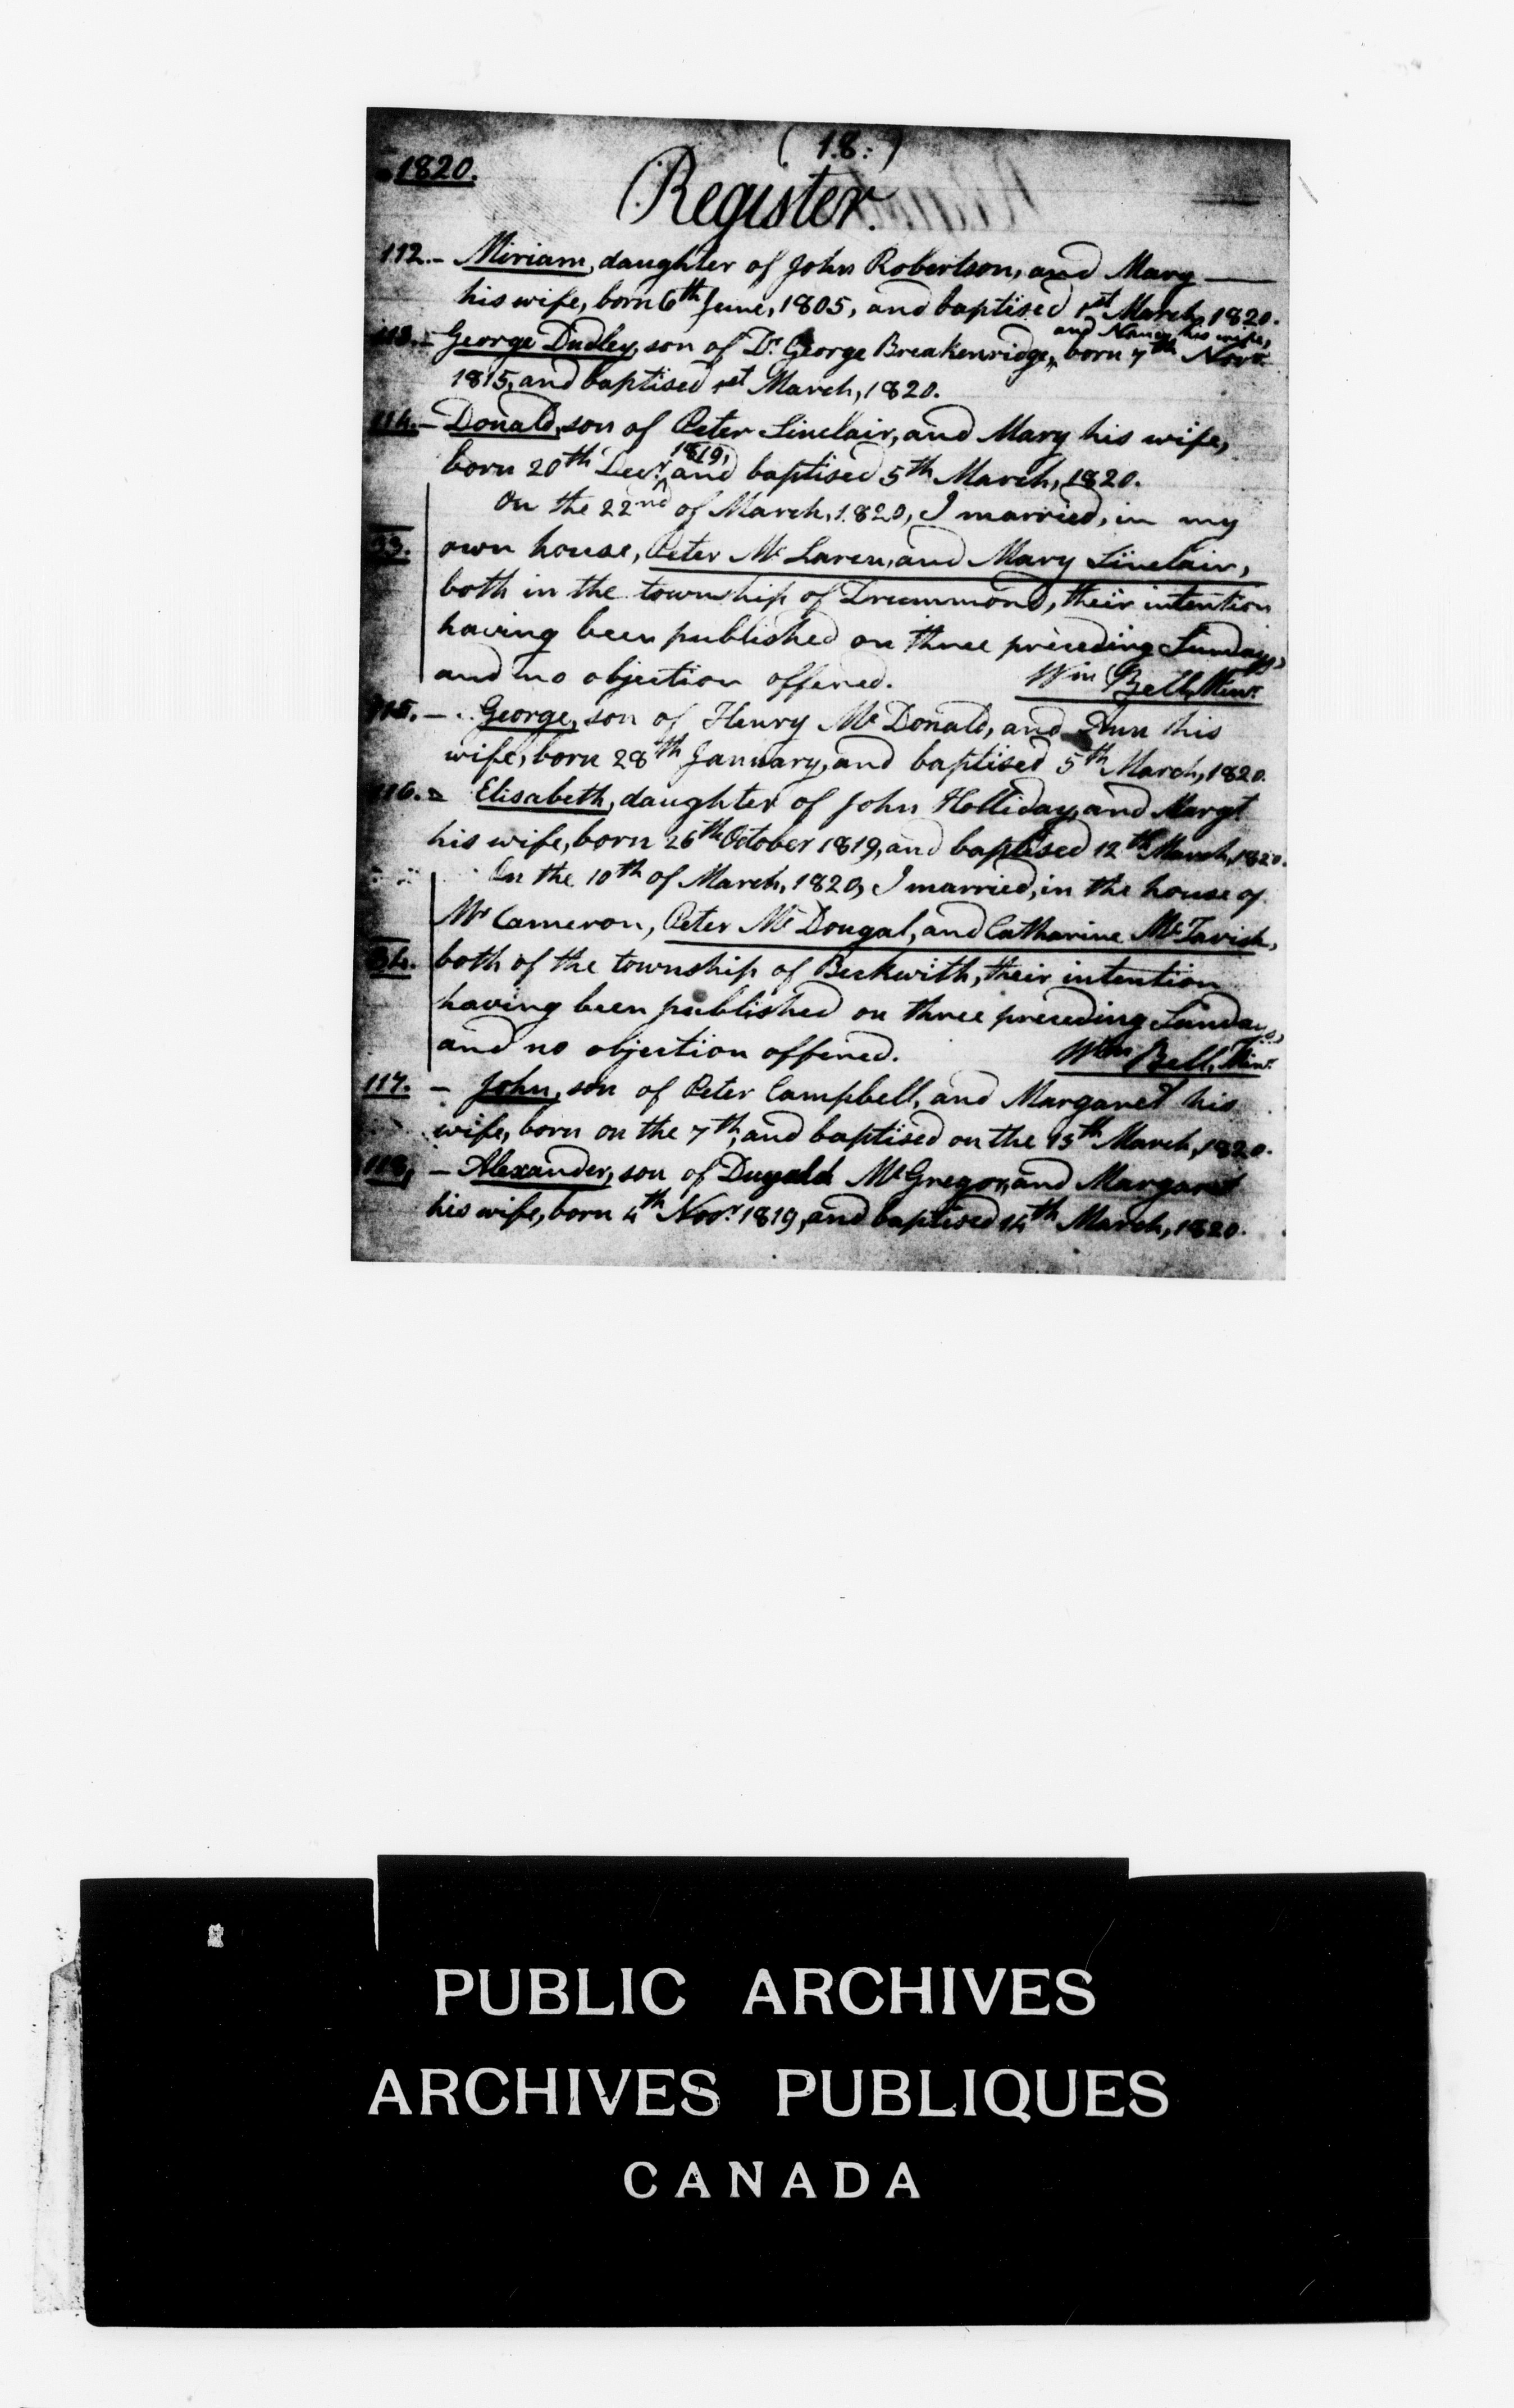 (18:)
1820.
Register.
112.- Miriam, daughter of John Robertson, and Mary
his wife, born 6th June, 1805, and baptised 1st March, 1820.
and Nancy his wife,
113.- George Dudley, son of Dr. George Breakenridge, ^ born 7th Novr.
1815, and baptised 1st March, 1820.
114.- Donald, son of Peter Sinclair, and Mary his wife,
1819,
born 20th Decr. ^ and baptised 5th March, 1820.
On the 22nd of March, 1820, I married, in my
33. own house, Peter McLaren, and Mary Sinclair,
both in the township of Drummond, their intention
having been published on three preceding Sundays,
and no objection offered. Wm Bell, Minr.
115.- George, son of Henry McDonald, and Ann his
wife, born 28th January, and baptised 5th March, 1820.
116.- Elisabeth, daughter of John Holliday, and Margt
his wife, born 26th October 1819, and baptised 12th March, 1820.
On the 10th of March, 1820, I married, in the house of
Mr Cameron, Peter McDougal, and Catharine McTavish,
34. both of the township of Beckwith, their intention
having been published on three preceding Sundays,
and no objection offered. Wm Bell, Minr.
117. - John, son of Peter Campbell, and Margaret his
wife, born on the 7th, and baptised on the 13th March, 1820.
118, - Alexander, son of Dugald McGregor, and Margaret
his wife, born 4th Novr. 1819, and baptised 14th March, 1820.
PUBLIC ARCHIVES
ARCHIVES PUBLIQUES
CANADA